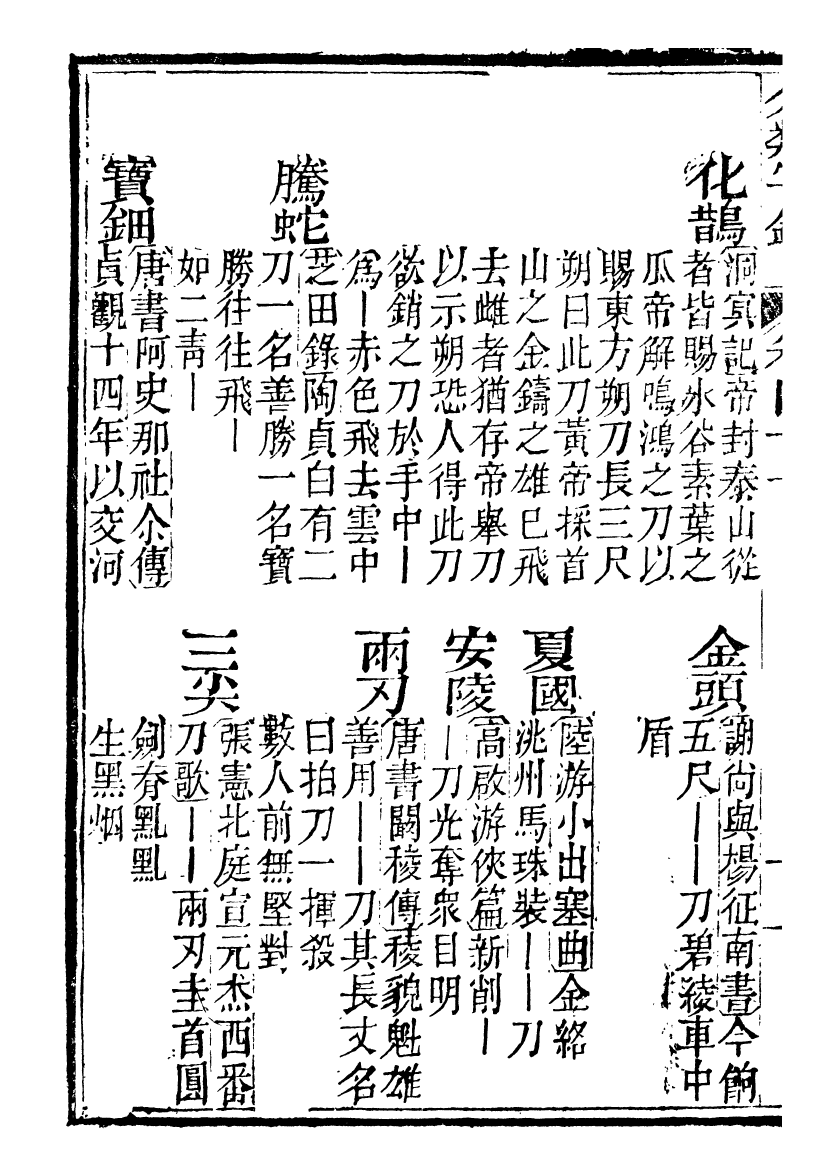 化鵲
洞㝠記帝封泰山從
者皆賜氷谷素葉之
瓜帝解鳴鴻之刀以
賜東方朔刀長三尺
朔曰此刀黃帝採首
山之金鑄之雄巳飛
去雌者猶存帝舉刀
以示朔恐人得此刀
欲銷之刀於手中丨
爲丨赤色飛去雲中
騰蛇
芝田錄陶貞白有二
刀一名善勝一名寶
勝往往飛丨
如二靑丨
寶鈿
唐書阿史那社尒傳
貞觀十四年以交河
金頭
謝尙與楊征南書今餉
五尺丨丨刀碧綾車中
盾
夏國
陸游小出塞曲金絡
洮州馬珠裝丨丨刀
安陵
高啟游俠篇新削丨
丨刀光奪衆目明
兩刃
唐書闞稜傳稜貌魁雄
善用丨丨刀其長丈名
曰拍刀一揮殺
數人前無堅對
三尖
張憲北庭宣元杰西番
刀歌丨丨兩刃圭首圓
劍脊亂亂
生黑烟